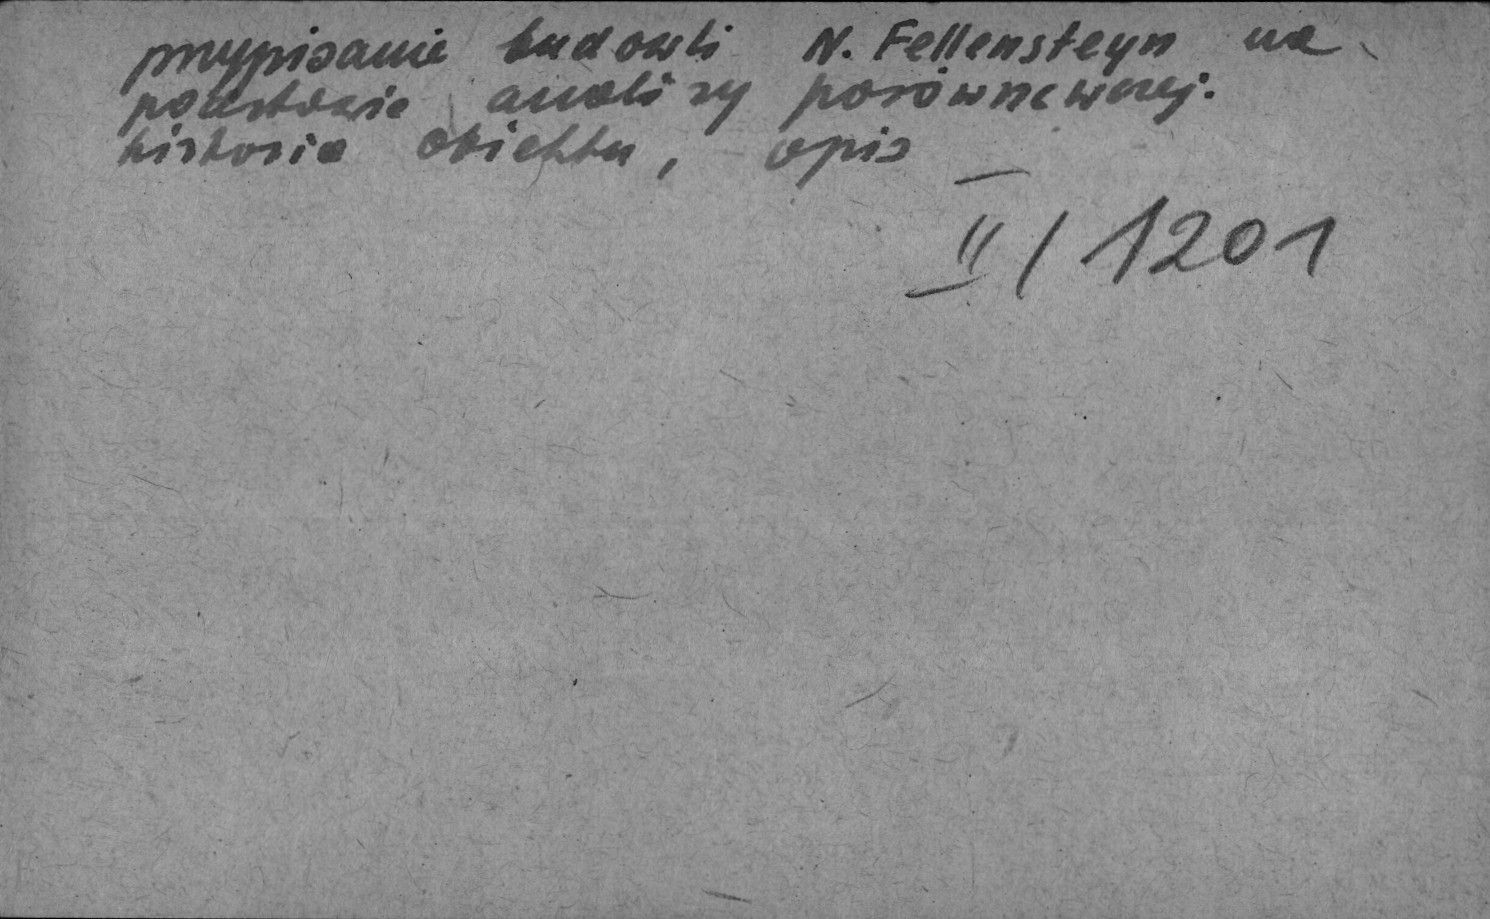 przypisanie budowli N. Fellensteyn na
podstawie analizy porównawczej.
historia obiektu, opis
II/1201